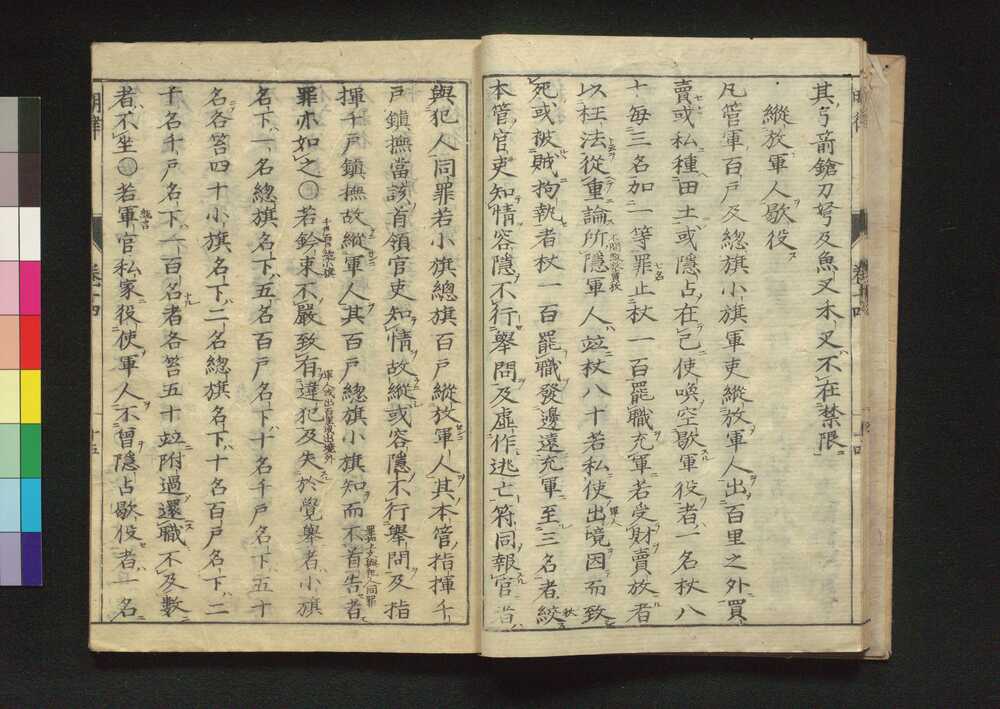 其弓箭鎗刀弩及魚叉禾叉不在禁限
縱放軍人歇役
凡管軍百戶及總旗小旗軍吏縱放軍人出百里之外買
賣或私種田土或隱占在己使喚空歇軍役者一名杖八
十每三名加一等罪止杖一百罷職充軍若受財賣放者
以枉法從重論所隱軍人並杖八十若私使出境因而致
死或被賊拘執者杖一百罷職發邊遠充軍至三名者絞
本管官吏知情容隱不行舉問及虛作逃亡符同報官者
與犯人同罪若小旗總旗百戶縱放軍人其本管指揮千
戶鎮撫當該首領官吏知情故縱或容隱不行舉問及指
揮千戶鎮撫故縱軍人其百戶總旗小旗知而不首告者
罪亦如之○若鈐束不嚴致有違犯及失於覺舉者小旗
名下一名總旗名下五名百戶名下十名千戶名下五十
名各笞四十小旗名下二名總旗名下十名百戶名下二
十名千戶名下一百名者各笞五十並附過還職不及數
者不坐○若軍官私家役使軍人不曾隱占歇役者一名
卷十四